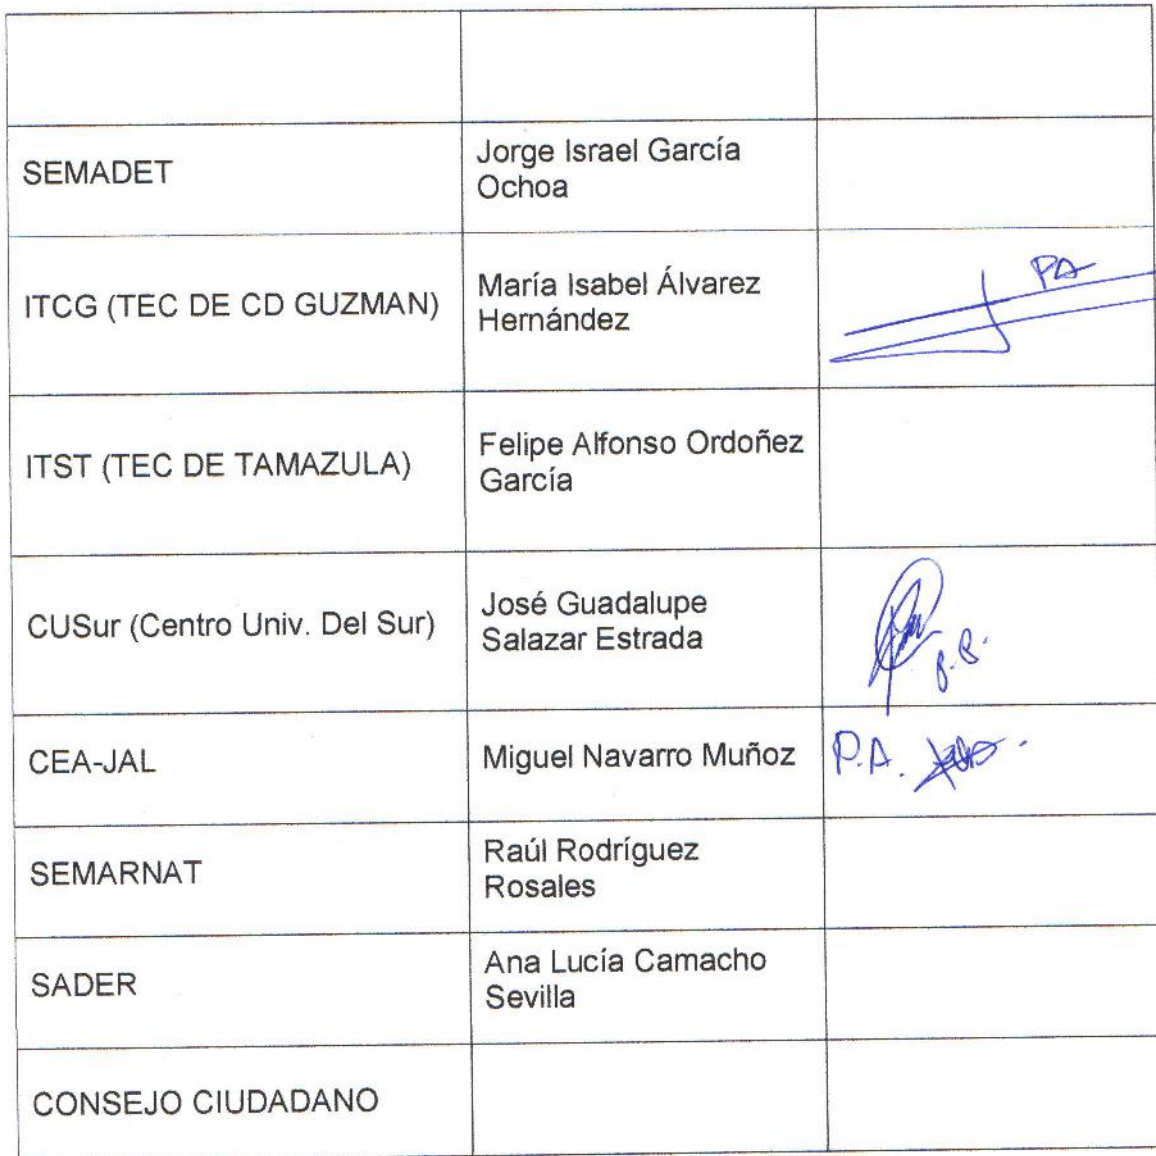 SEMADET
Jorge Israel García
Ochoa
ITCG (TEC DE CD GUZMAN)
María Isabel Álvarez
Hernández
PA
ITST (TEC DE TAMAZULA)
Felipe Alfonso Ordoñez
García
CUSur (Centro Univ. Del Sur)
José Guadalupe
Salazar Estrada
CEA-JAL
Miguel Navarro Muñoz
P.A.
SEMARNAT
Raúl Rodríguez
Rosales
SADER
Ana Lucía Camacho
Sevilla
CONSEJO CIUDADANO